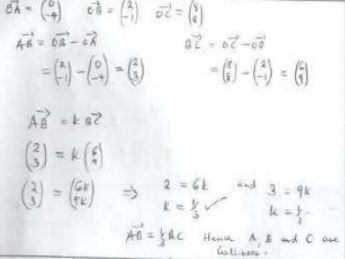 OA→ = (0 -4) OB→ = (2 -1) OC→ = (8 8)
AB→ = OB→ - OA→ BC→ = OC→ - OB→
= (2 -1) - (0 -4) = (2 3) = (8 8) - (2 -1) = (6 9)
AB→ = k BC→
(2 3) = k (6 9)
(2 3) = (6k 9k) ⇒ 2 = 6k and 3 = 9k
k = 1/3 ✓ k = 1/3
AB→ = 1/3 BC Hence A, B and C are
Collinear.